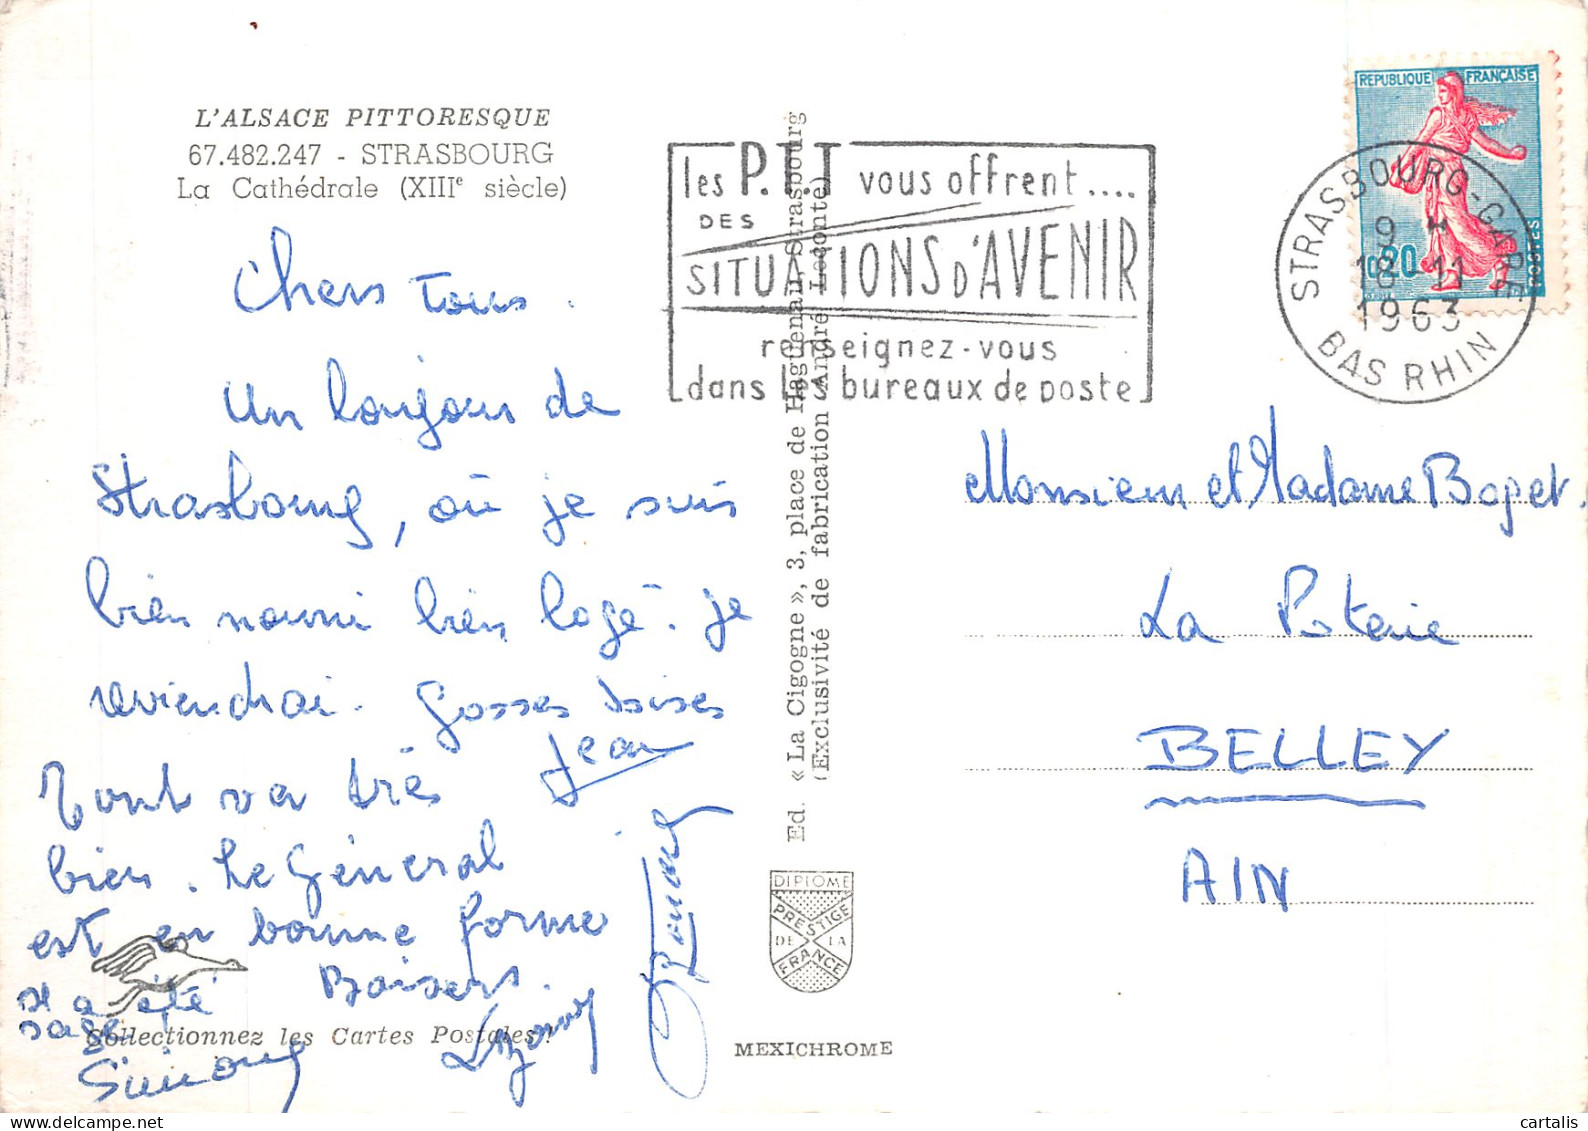 L'ALSACE PITTORESQUE
67.482.247 - STRASBOURG
La Cathédrale (XIIIe siècle)
Chers Tous.
Un bonjour de
Strasbourg, où je suis
bien nourri bien logé. je
reviendrai. Grosses bises
Jean
Tout va très
bien. Le Général
est en bonne forme
il a été
sage!
Baisers.
Simone
Collectionnez les Cartes Postales!
Ed. « La Cigogne », 3, place de Haguenau, Strasbourg
(Exclusivité de fabrication André Leconte)
DIPLOME
PRESTIGE
DE LA
FRANCE
MEXICHROME
les P.T.T vous offrent....
DES
SITUATIONS D'AVENIR
renseignez-vous
dans les bureaux de poste
REPUBLIQUE FRANÇAISE
0,20
POSTES
STRASBOURG-GARE
9 H
18-11
1963
BAS RHIN
Monsieur et Madame Bopet.
La Poterie
BELLEY
AIN
cartalis